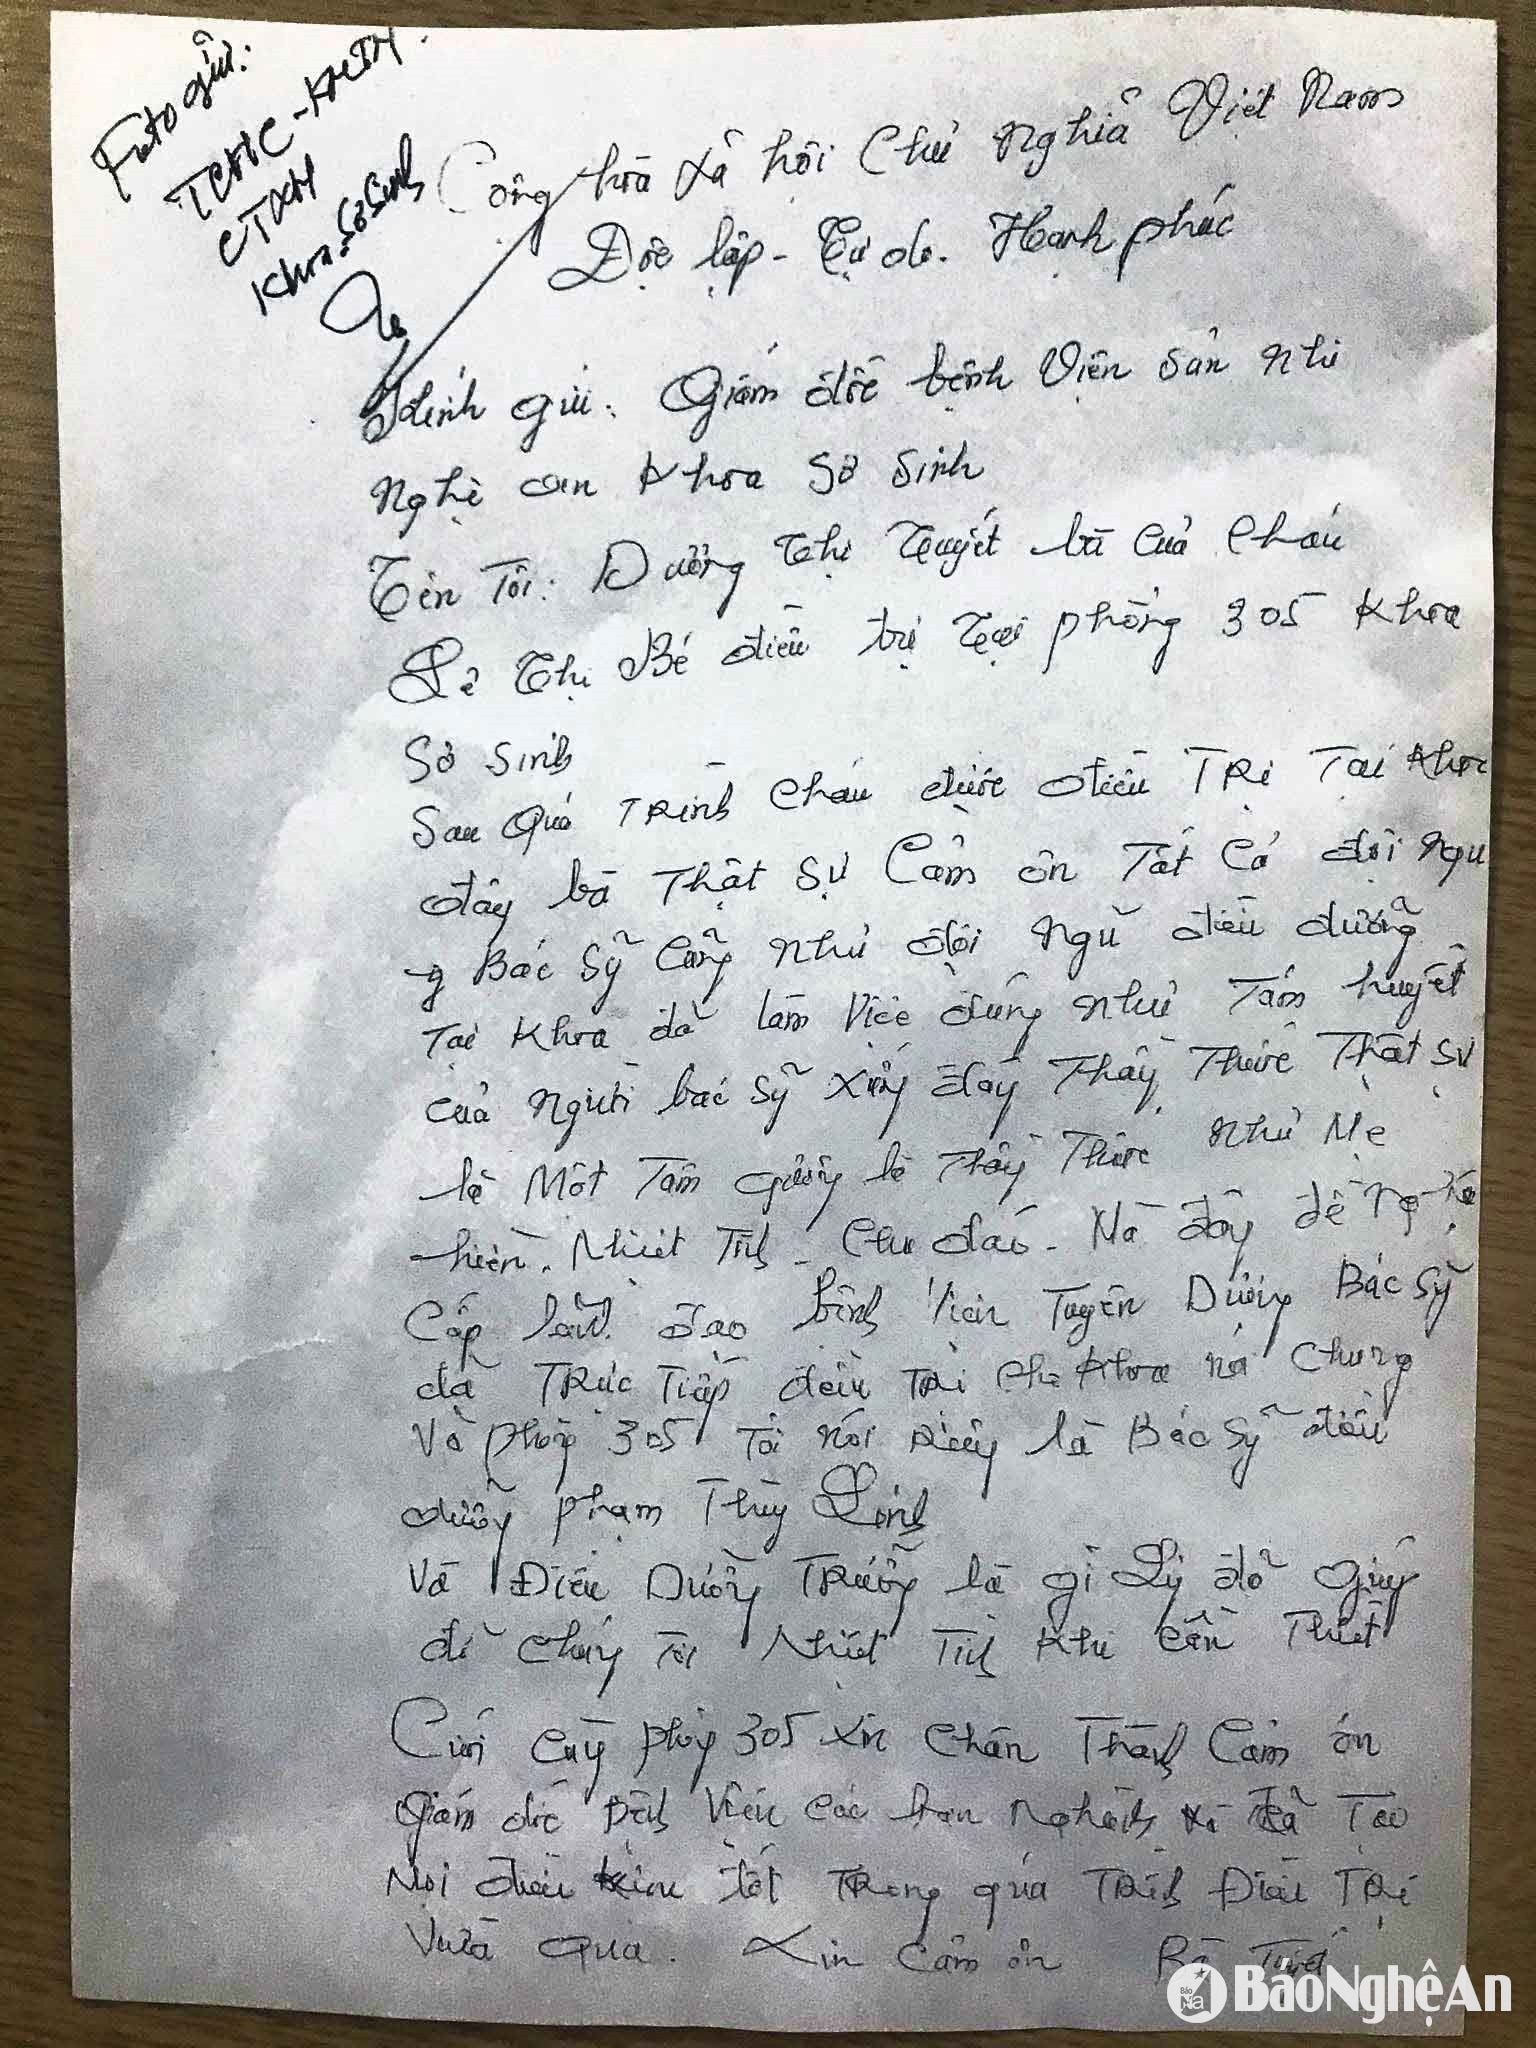 Foto gửi:
TCHC - KHTH.
CTXH
Khoa Sơ Sinh
Cộng hòa xã hội Chủ Nghĩa Việt Nam
Độc lập - Tự do. Hạnh phúc
Kính gửi: Giám đốc bệnh Viện sản nhi
Nghệ an Khoa Sơ Sinh
Tên Tôi: Dương Thị Tuyết bà của cháu
Lê Thị Bé điều trị tại phòng 305 Khoa
Sơ Sinh
Sau Quá Trình cháu được điều Trị Tại Khoa
đây bà Thật Sự Cảm ơn Tất Cả đội ngu
Bác Sỹ Cũng như đội ngũ điều dưỡng
Tại Khoa đã làm Việc đúng như Tâm huyết
của người bác sỹ xứng đáng Thầy Thuốc Thật sự
là Một Tấm gương là Thầy Thuốc như Mẹ
hiền. Nhiệt Tình - Chu đáo. Nà đây đề
Cấp lãnh đạo bệnh Viện Tuyên Dương Bác Sỹ
đã Trực Tiếp điều Trị cho Khoa nói Chung
Và phòng 305 Tôi nói Riêng là Bác Sỹ điều
dưỡng phạm Thùy Linh
Và Điều Dưỡng Trưởng là gì Lý đã giúp
đỡ chúng Tôi Nhiệt Tình Khi Cần Thiết
Cuối cùng phòng 305 xin chân Thành Cảm ơn
Giám đốc Bệnh Viện các ban Nghành đã Tạo
Mọi điều kiện tốt Trong quá Trình Điều Trị
Vừa qua. Xin cảm ơn Bà Tuyết
BáoNghệAn